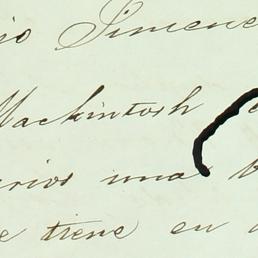 io Simene
Mackintosh
arios una
e tiene en